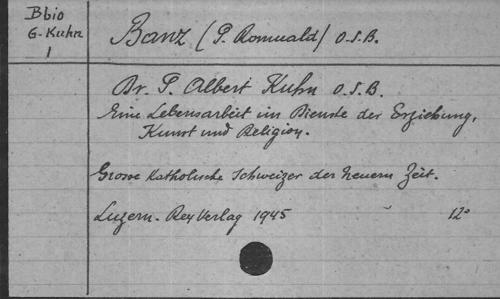 Bbio
G-Kuhn
1
Banz (P. Romuald) O.S.B.
Dr. P. Albert Kuhn O.S.B.
Eine Lebensarbeit im Dienste der Erziehung,
Kunst und Religion.
Grosse Katholische Schweizer der neuern Zeit.
Luzern. Rex Verlag 1945 12°